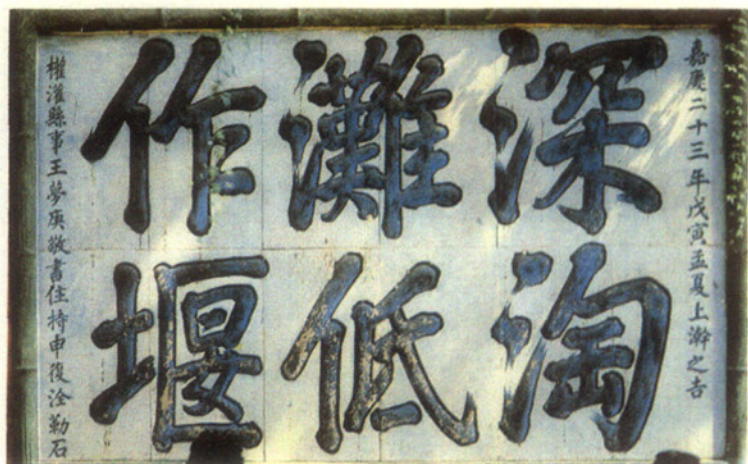 嘉慶二十三年戊寅孟夏上澣之吉
深淘
灘低
作堰
權灌縣事王夢庚敬書住持申復淦勒石